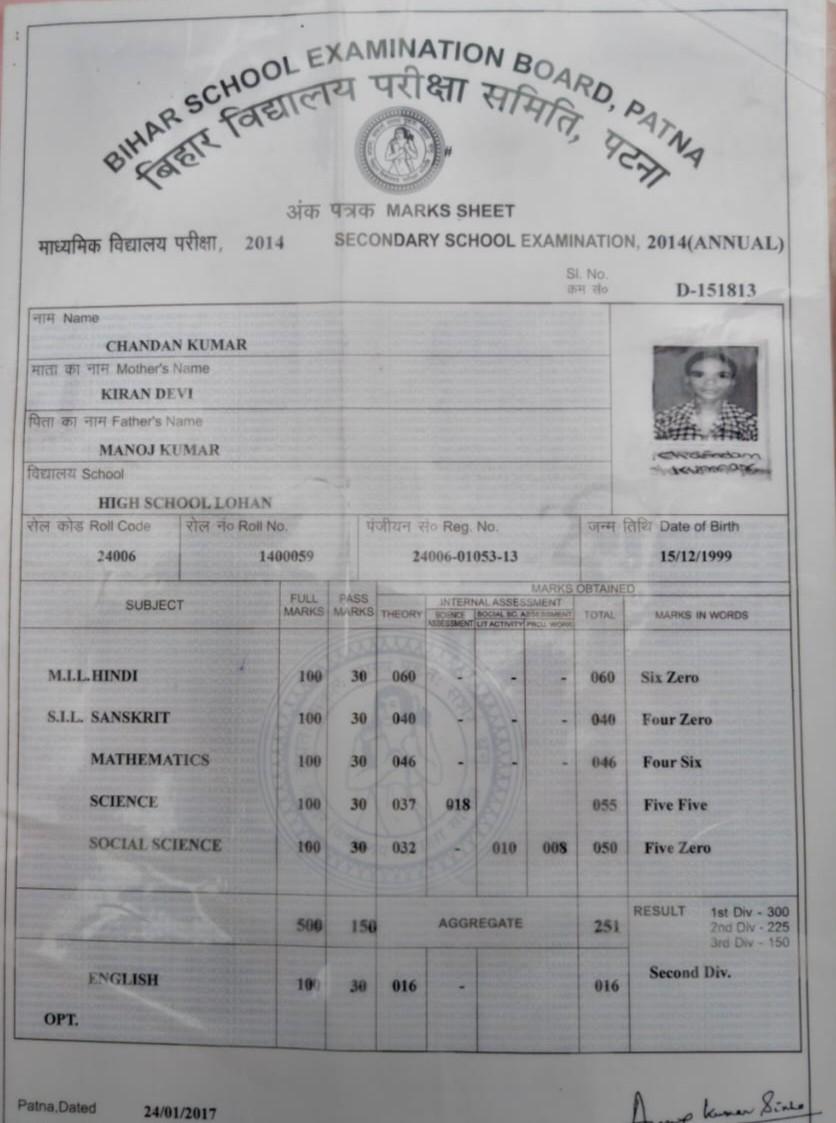 BIHAR SCHOOL EXAMINATION BOARD, PATNA
बिहार विद्यालय परीक्षा समिति, पटना
अंक पत्रक MARKS SHEET
माध्यमिक विद्यालय परीक्षा, 2014 SECONDARY SCHOOL EXAMINATION, 2014(ANNUAL)
Sl. No.
कम सं० D-151813
नाम Name
CHANDAN KUMAR
माता का नाम Mother's Name
KIRAN DEVI
पिता का नाम Father's Name
MANOJ KUMAR
विद्यालय School
HIGH SCHOOL LOHAN
रोल कोड Roll Code रोल नं० Roll No. पंजीयन सं० Reg. No. जन्म तिथि Date of Birth
24006 1400059 24006-01053-13 15/12/1999
SUBJECT FULL MARKS PASS MARKS MARKS OBTAINED
THEORY INTERNAL ASSESSMENT TOTAL MARKS IN WORDS
SCIENCE ASSESSMENT SOCIAL SC. ASSESSMENT
LIT ACTIVITY PROJ. WORK
M.I.L. HINDI 100 30 060 - - - 060 Six Zero
S.I.L. SANSKRIT 100 30 040 - - - 040 Four Zero
MATHEMATICS 100 30 046 - - - 046 Four Six
SCIENCE 100 30 037 018 055 Five Five
SOCIAL SCIENCE 100 30 032 - 010 008 050 Five Zero
500 150 AGGREGATE 251 RESULT 1st Div - 300
2nd Div - 225
3rd Div - 150
ENGLISH 100 30 016 - 016 Second Div.
OPT.
Patna,Dated 24/01/2017
Kumar Sinha